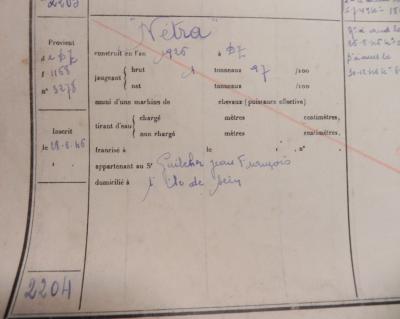 2203
"Nétra"
Provient
d e DZ
f° 1168
n° 3278
Inscrit
le 28-8-46
construit en l'an 1926 à DZ
jaugeant
brut 1 tonneaux 97 /100
net tonneaux /100
muni d'une machine de chevaux (puissance effective)
tirant d'eau
chargé mètres centimètres,
non chargé mètres centimètres,
francisé à le , n°
appartenant au Sr Guilcher Jean François
domicilié à Ile de Sein
2204